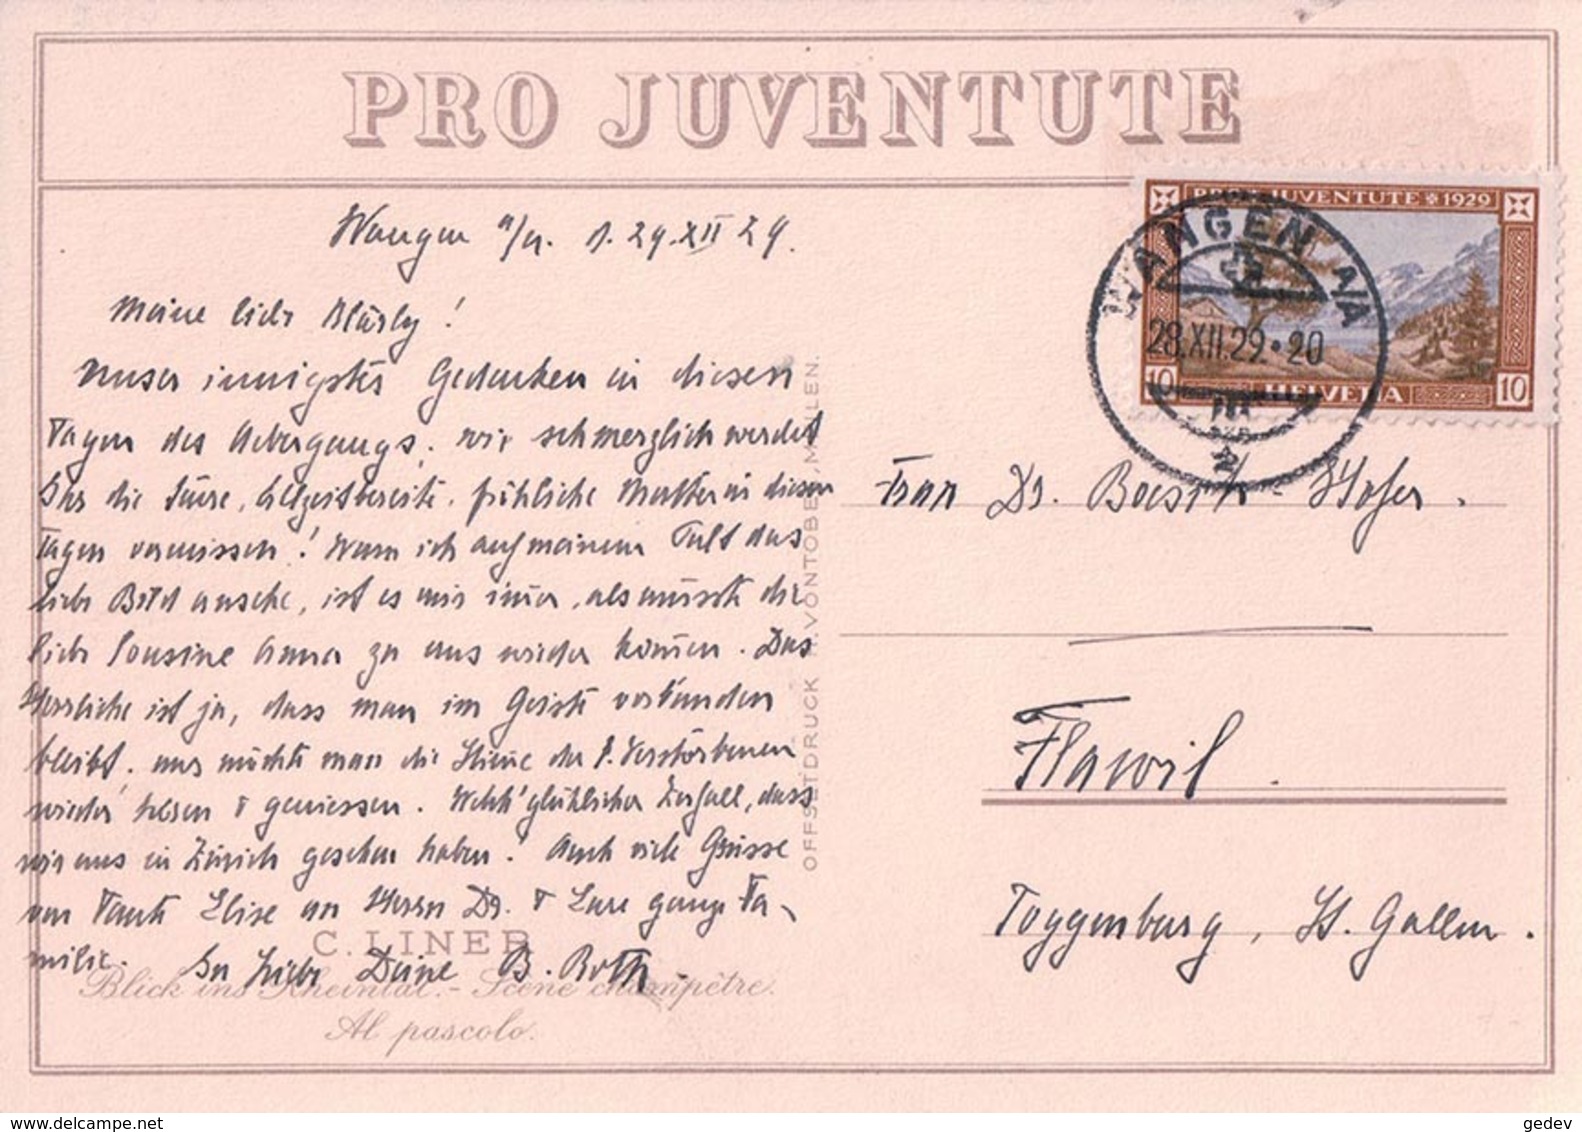 PRO JUVENTUTE
Wangen a/A. d. 29.XII 29.
Meine liebe Klärly!
Unser innigstes Gedenken in diesen
Tagen des Uebergangs. wie schmerzlich werdet
Ihr die teure, allzeitbereite, fröhliche Mutter in diesen
Tagen vermissen! Wenn ich auf meinem Pult das
liebe Bild ansehe, ist es mir immer, als müsste die
liebe Cousine Anna zu uns wieder kommen. Das
Herrliche ist ja, dass man im Geiste verbunden
bleibt. nur möchte man die Stimme der l. Verstorbenen
wieder hören & geniessen. Welch' glücklicher Zufall, dass
wir uns in Zürich gesehen haben! Auch viele Grüsse
von Tante Elise an Herrn Dr. & Eure ganze Fa-
milie. In Liebe Deine B. Roth.
C. LINER
Blick ins Rheintal. - Scène champêtre.
Al pascolo.
OFFSETDRUCK VONTOBEL, MEILEN.
PRO JUVENTUTE 1929
10 HELVETIA 10
WANGEN A/A
28.XII.29.20
Frau Dr. Boesch-Hofer.
Flawil.
Toggenburg, St. Gallen.
gedev